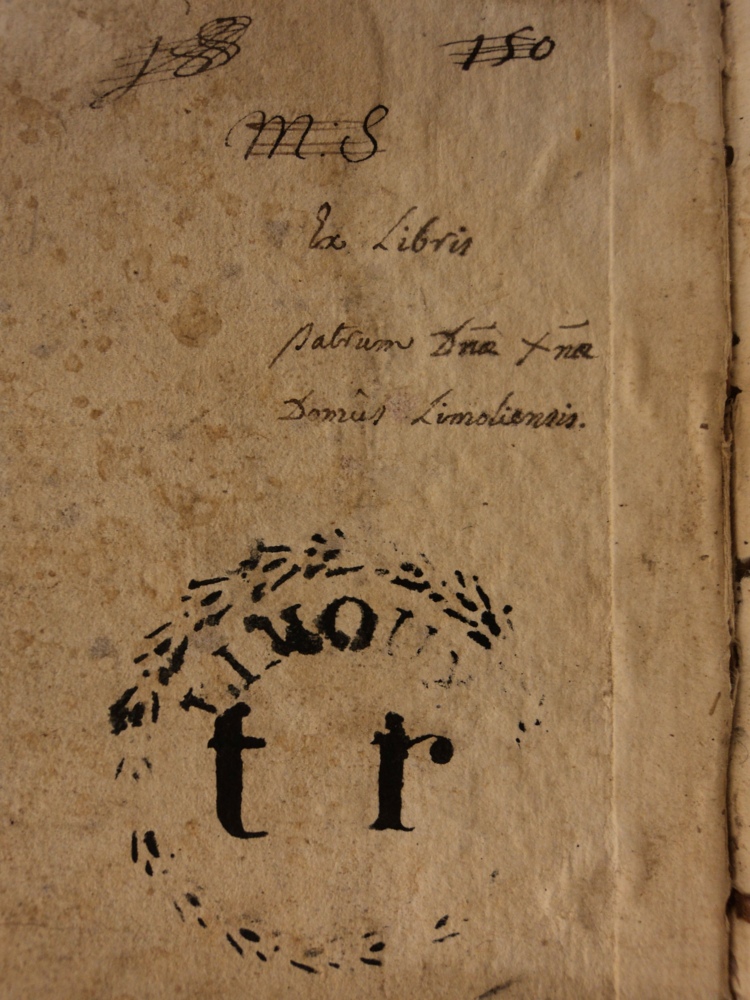 150
M. S
Ex Libris
patrum Dn̄æ Xnǣ
Domûs Limoliensis.
LIMOUX
t r